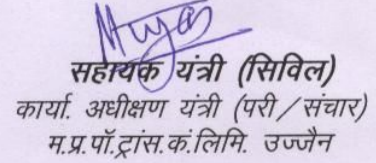 सहायक यंत्री (सिविल)
कार्या. अधीक्षण यंत्री (परी/संचार)
म.प्र.पॉ.ट्रांस.कं.लिमि. उज्जैन